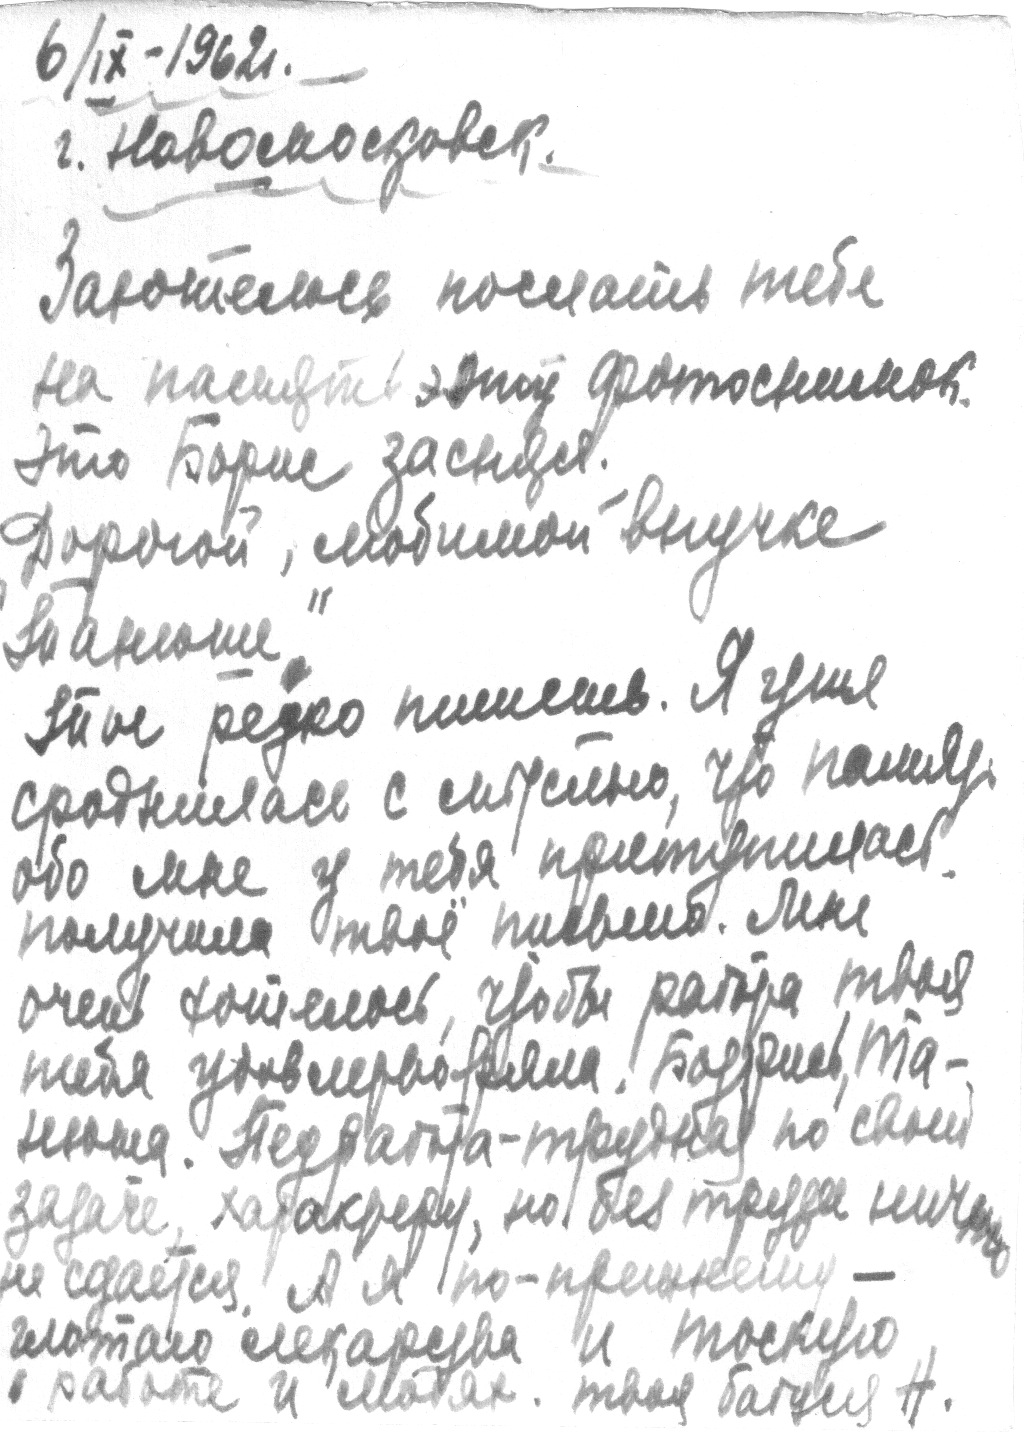 6/IX-1962г.
г. Новомосковск.
Захотелось послать тебе
на память этот фотоснимок.
Это Борис заснял.
Дорогой, любимой внучке
"Танюше"
Ты редко пишешь. Я уже
сроднилась с мыслью, что память
обо мне у тебя притупилась.
получила твоё письмо. Мне
очень хотелось, чтобы работа твоя
тебя удовлетворяла. Бодрись, Та-
нюша. Педработа-трудная по своей
задаче, характеру, но без труда ничего
не сдаётся. А я по-прежнему —
глотаю лекарства и тоскую
о работе и людях. твоя бабуся Н.